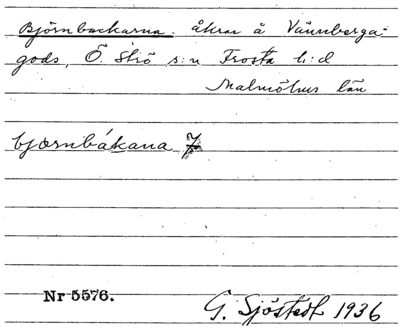 Björnbackarna. åkrar å Vännberga-
gods, Ö. Strö s:n Frosta h:d
Malmöhus län
bjørnbákana
Nr 5576.
G. Sjöstedt 1936